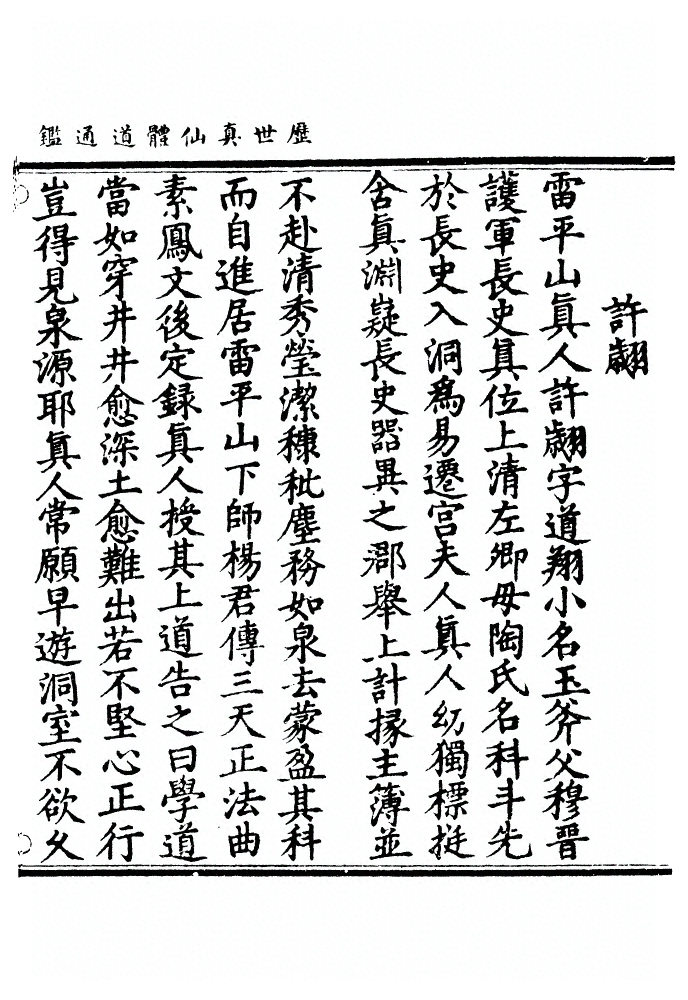 歷世真仙體道通鑑
許翽
雷平山眞人許翽字道翔小名玉斧父穆晉
護軍長史眞位上清左卿母陶氏名科斗先
於長史入洞爲易遷宮夫人眞人幼獨標挺
含眞淵嶷長史器異之郡舉上計掾主簿並
不赴清秀瑩潔糠秕塵務如泉去蒙盈其科
而自進居雷平山下師楊君傳三天正法曲
素鳳文後定録眞人授其上道告之曰學道
當如穿井井愈深土愈難出若不堅心正行
豈得見泉源耶眞人常願早遊洞室不欲久